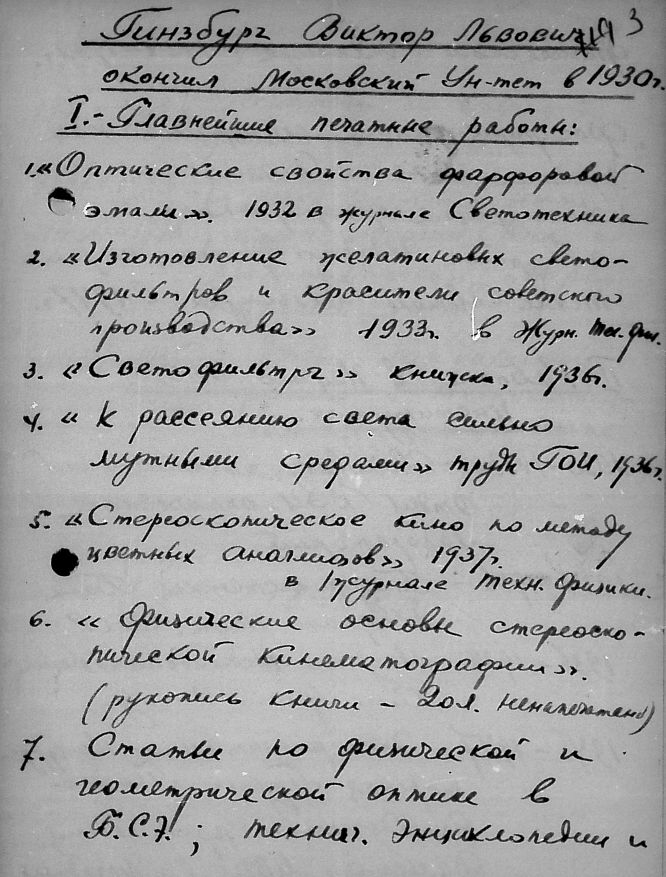 Гинзбург Виктор Львович 3
окончил Московский Ун-тет в 1930г.
I.- Главнейшие печатные работы:
1. «Оптические свойства фарфоровой
эмали». 1932 в журнале Светотехника
2. «Изготовление желатиновых свето-
фильтров и красители советского
производства» 1933г. в Журн. тех. физ.
3. «Светофильтры» книжка, 1936г.
4. « К рассеянию света сильно
мутными средами» труды ГОИ, 1936г.
5. «Стереоскопическое кино по методу
цветных анаглифов» 1937г.
в журнале техн. физики.
6. « Физические основы стереоско-
пической кинематографии».
(рукопись книги – 20л. ненапечатано)
7. Статьи по физической и
геометрической оптике в
Б.С.Э.; технич. Энциклопедии и